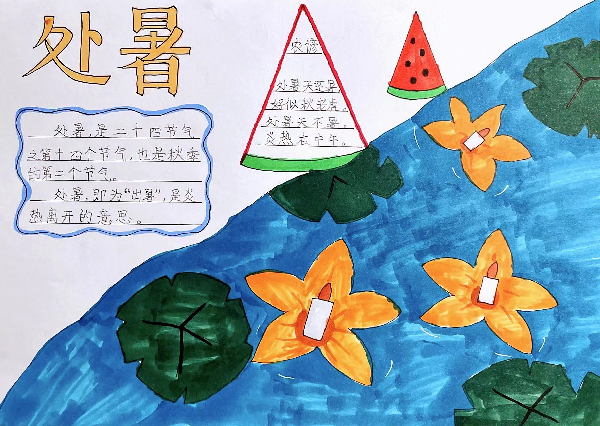 处暑
处暑，是二十四节气
之第十四个节气，也是秋季
的第二个节气。
处暑，即为“出暑”，是炎
热离开的意思。
农谚
处暑天还暑，
好似秋老虎。
处暑天不暑，
炎热在中午。